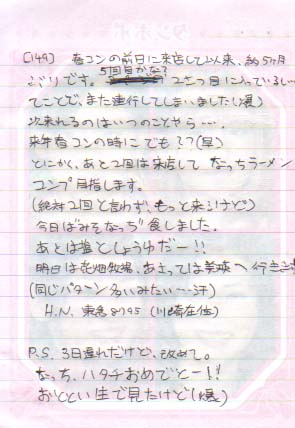 [149] 春コンの前日に来店して以来、約5ヶ月
ぶりです。
5回目かな?
2さつ目に入っているし…
てことで、また進行してしまいました(爆)
次来れるのはいつのことやら…。
来年春コンの時にでも??(早)
とにかく、あと2回は来店して なっちラーメン
コンプ目指します。
(絶対2回と言わず、もっと来るけど)
今日は"みそなっち"食しました。
あとは塩としょうゆだー!!
明日は花畑牧場、あさっては美瑛へ行き
(同じパターン多いみたい…汗)
H.N. 東急8795 (川崎在住)
P.S. 3日遅れだけど、改めて。
なっち、ハタチおめでとー!!
おととい生で見たけど(爆)